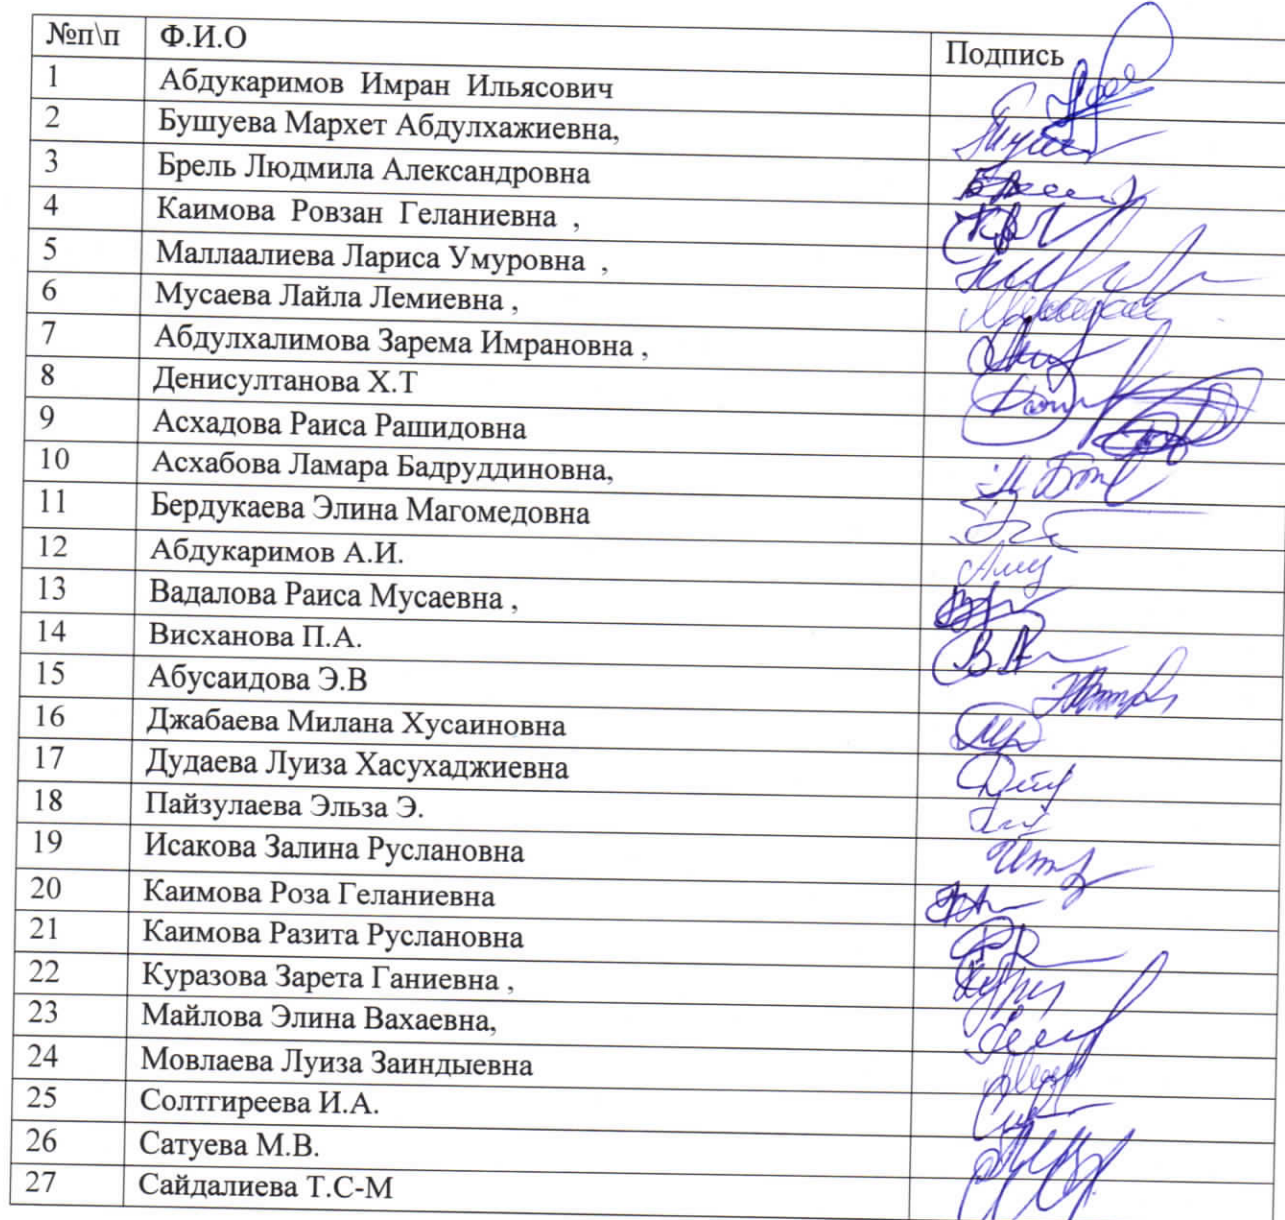 №п\п Ф.И.О Подпись
1 Абдукаримов Имран Ильясович
2 Бушуева Мархет Абдулхажиевна,
3 Брель Людмила Александровна
4 Каимова Ровзан Геланиевна ,
5 Маллаалиева Лариса Умуровна ,
6 Мусаева Лайла Лемиевна ,
7 Абдулхалимова Зарема Имрановна ,
8 Денисултанова Х.Т
9 Асхадова Раиса Рашидовна
10 Асхабова Ламара Бадруддиновна,
11 Бердукаева Элина Магомедовна
12 Абдукаримов А.И.
13 Вадалова Раиса Мусаевна ,
14 Висханова П.А.
15 Абусаидова Э.В
16 Джабаева Милана Хусаиновна
17 Дудаева Луиза Хасухаджиевна
18 Пайзулаева Эльза Э.
19 Исакова Залина Руслановна
20 Каимова Роза Геланиевна
21 Каимова Разита Руслановна
22 Куразова Зарета Ганиевна ,
23 Майлова Элина Вахаевна,
24 Мовлаева Луиза Заиндыевна
25 Солтгиреева И.А.
26 Сатуева М.В.
27 Сайдалиева Т.С-М